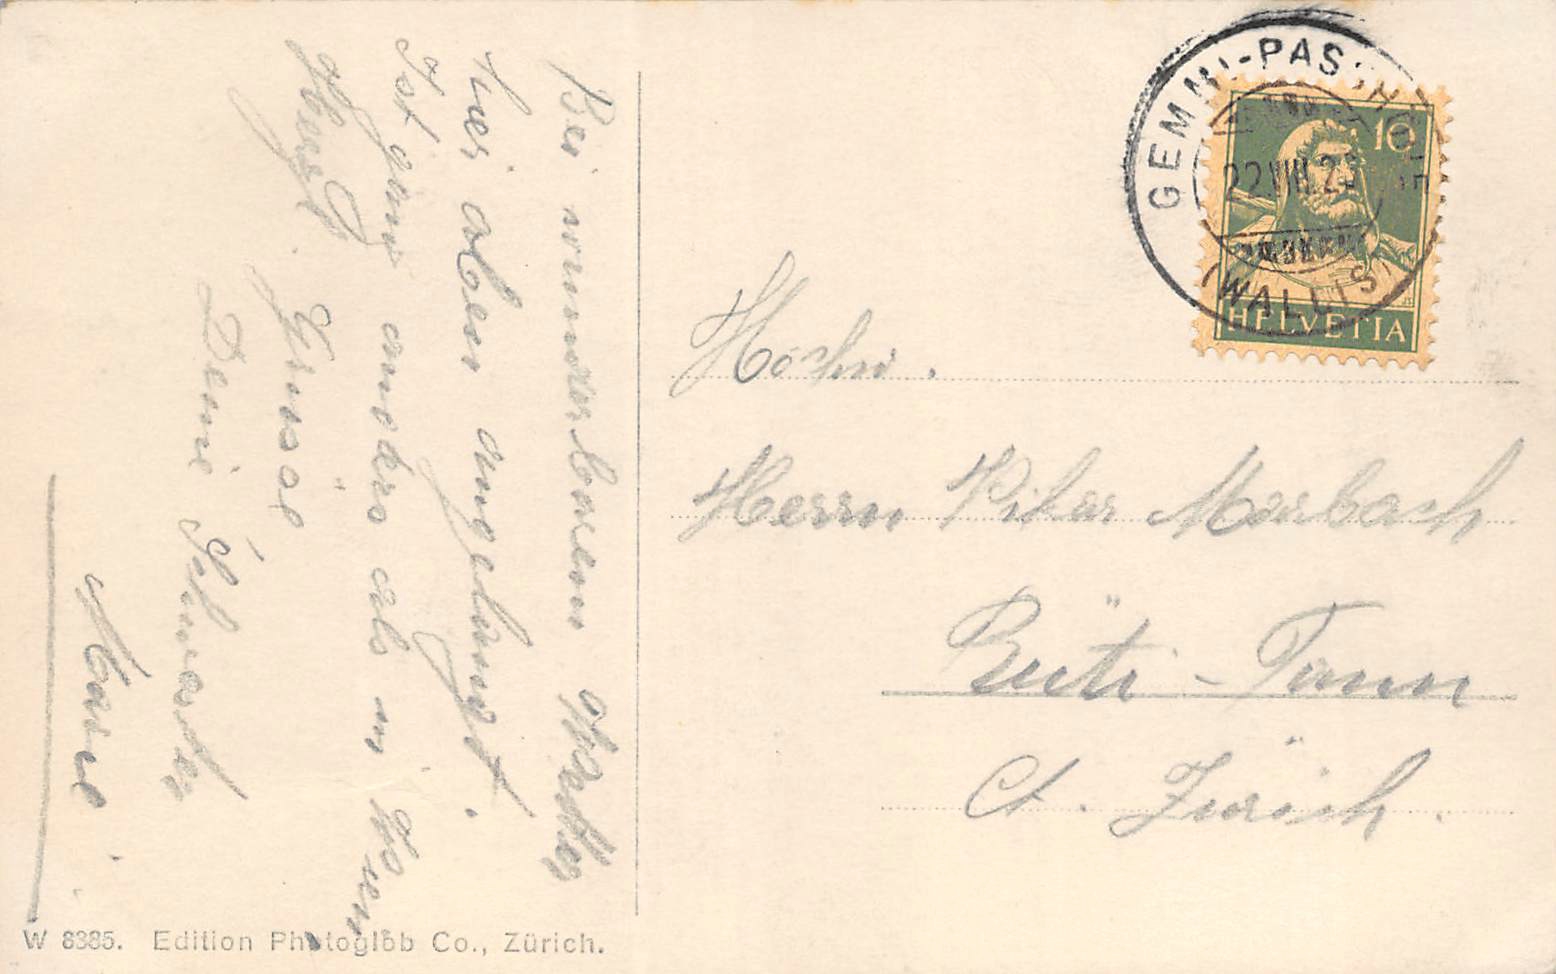 Bei wunderbarem Wetter
hier oben angelangt.
Ist ganz anders als in
Herzl. Grüsse
Deine Schwester
Marie
GEMMI-PASSHÖHE
22.VIII.2
(WALLIS)
10
HELVETIA
Hochw.
Herrn Vikar Marbach
Rüti-Tann
Ct. Zürich.
W 8385. Edition Photoglob Co., Zürich.